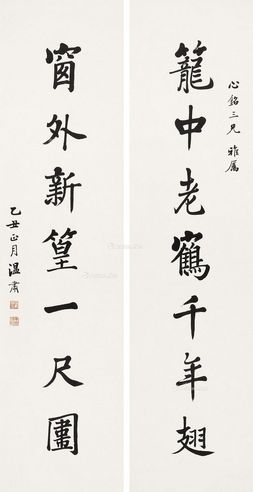 心銘三兄 雅屬
籠中老鶴千年翅
窗外新篁一尺圍
乙丑正月溫肅